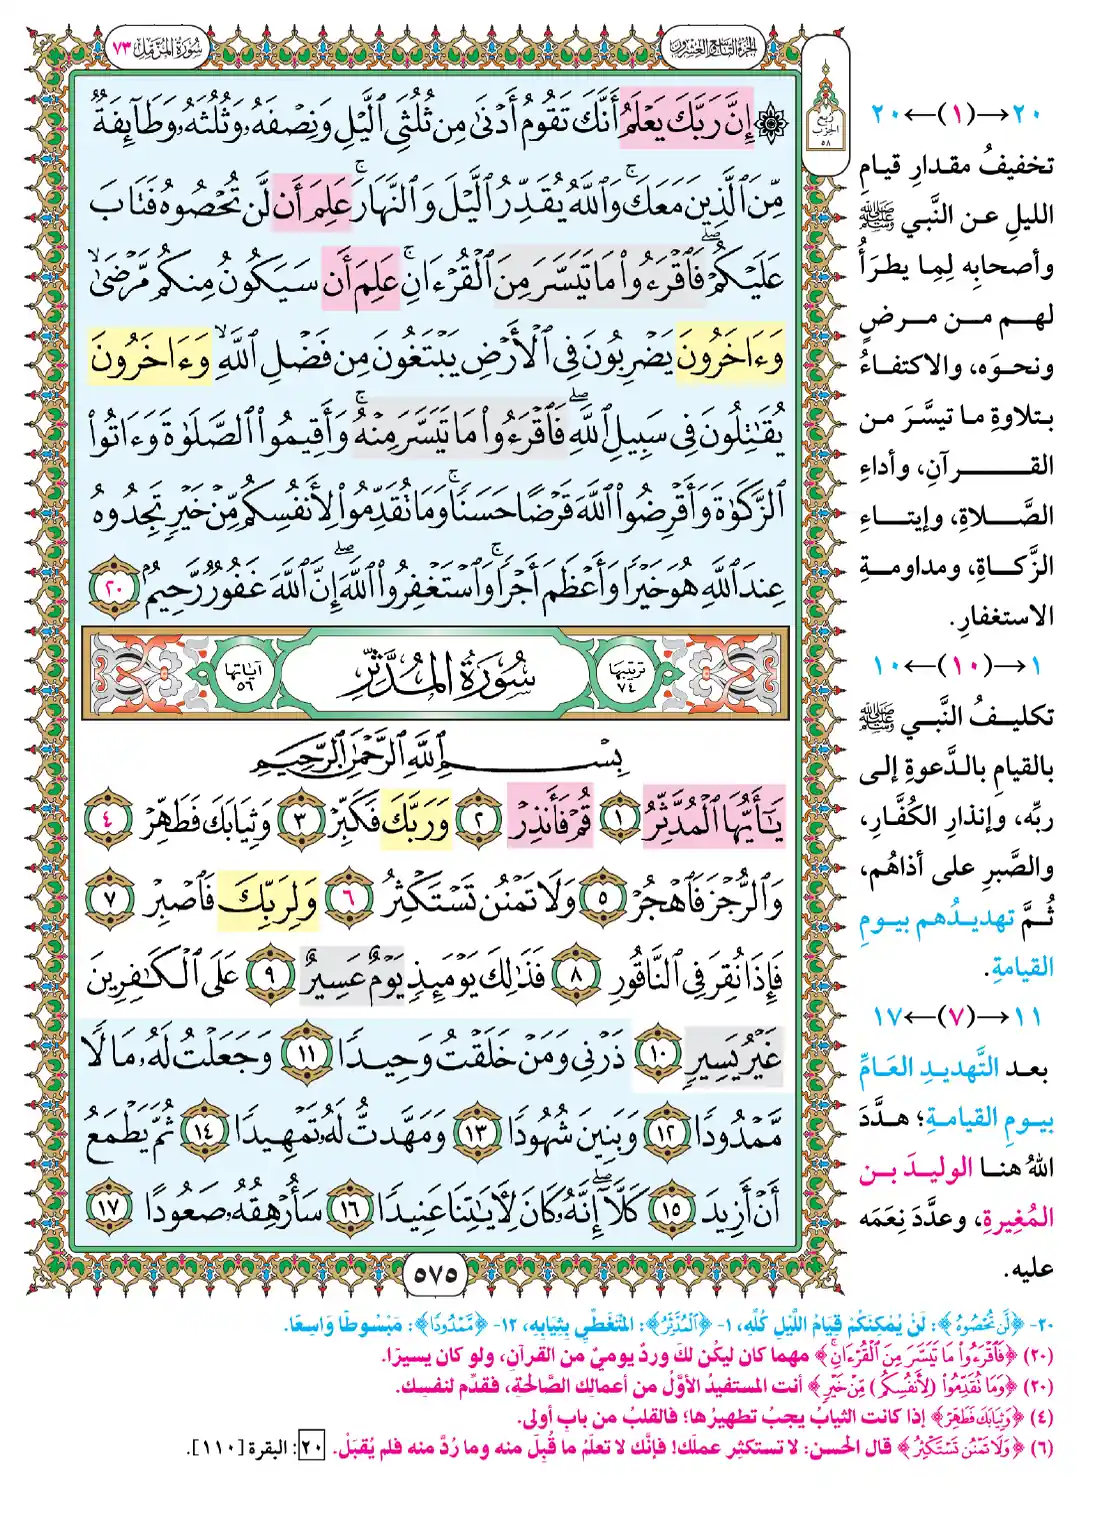 الجزء التاسع والعشرون
سورة المزمل ٧٣
ربع الحزب ٥٨
۞ إِنَّ رَبَّكَ يَعْلَمُ أَنَّكَ تَقُومُ أَدْنَىٰ مِن ثُلُثَيِ ٱلَّيْلِ وَنِصْفَهُۥ وَثُلُثَهُۥ وَطَآئِفَةٌ
مِّنَ ٱلَّذِينَ مَعَكَ ۚ وَٱللَّهُ يُقَدِّرُ ٱلَّيْلَ وَٱلنَّهَارَ ۚ عَلِمَ أَن لَّن تُحْصُوهُ فَتَابَ
عَلَيْكُمْ ۖ فَٱقْرَءُوا۟ مَا تَيَسَّرَ مِنَ ٱلْقُرْءَانِ ۚ عَلِمَ أَن سَيَكُونُ مِنكُم مَّرْضَىٰ ۙ
وَءَاخَرُونَ يَضْرِبُونَ فِى ٱلْأَرْضِ يَبْتَغُونَ مِن فَضْلِ ٱللَّهِ ۙ وَءَاخَرُونَ
يُقَـٰتِلُونَ فِى سَبِيلِ ٱللَّهِ ۖ فَٱقْرَءُوا۟ مَا تَيَسَّرَ مِنْهُ ۚ وَأَقِيمُوا۟ ٱلصَّلَوٰةَ وَءَاتُوا۟
ٱلزَّكَوٰةَ وَأَقْرِضُوا۟ ٱللَّهَ قَرْضًا حَسَنًا ۚ وَمَا تُقَدِّمُوا۟ لِأَنفُسِكُم مِّنْ خَيْرٍ تَجِدُوهُ
عِندَ ٱللَّهِ هُوَ خَيْرًا وَأَعْظَمَ أَجْرًا ۚ وَٱسْتَغْفِرُوا۟ ٱللَّهَ ۖ إِنَّ ٱللَّهَ غَفُورٌ رَّحِيمٌۢ ٢٠
ترتيبها ٧٤
سورة المدثر
آياتها ٥٦
بِسْمِ ٱللَّهِ ٱلرَّحْمَـٰنِ ٱلرَّحِيمِ
يَـٰٓأَيُّهَا ٱلْمُدَّثِّرُ ١ قُمْ فَأَنذِرْ ٢ وَرَبَّكَ فَكَبِّرْ ٣ وَثِيَابَكَ فَطَهِّرْ ٤
وَٱلرُّجْزَ فَٱهْجُرْ ٥ وَلَا تَمْنُن تَسْتَكْثِرُ ٦ وَلِرَبِّكَ فَٱصْبِرْ ٧
فَإِذَا نُقِرَ فِى ٱلنَّاقُورِ ٨ فَذَٰلِكَ يَوْمَئِذٍ يَوْمٌ عَسِيرٌ ٩ عَلَى ٱلْكَـٰفِرِينَ
غَيْرُ يَسِيرٍ ١٠ ذَرْنِى وَمَنْ خَلَقْتُ وَحِيدًا ١١ وَجَعَلْتُ لَهُۥ مَالًا
مَّمْدُودًا ١٢ وَبَنِينَ شُهُودًا ١٣ وَمَهَّدتُّ لَهُۥ تَمْهِيدًا ١٤ ثُمَّ يَطْمَعُ
أَنْ أَزِيدَ ١٥ كَلَّآ ۖ إِنَّهُۥ كَانَ لِـَٔايَـٰتِنَا عَنِيدًا ١٦ سَأُرْهِقُهُۥ صَعُودًا ١٧
٥٧٥
٢٠→(١)←٢٠
تخفيفُ مقدارِ قيامِ
الليلِ عن النَّبي ﷺ
وأصحابِه لِمِا يطرَأُ
لهم من مرضٍ
ونحوَه، والاكتفاءُ
بتلاوةِ ما تيسَّرَ من
القرآنِ، وأداءِ
الصَّلاةِ، وإيتاءِ
الزَّكاةِ، ومداومةِ
الاستغفارِ.
١→(١٠)←١٠
تكليفُ النَّبي ﷺ
بالقيامِ بالدَّعوةِ إلى
ربِّه، وإنذارِ الكُفَّارِ،
والصَّبرِ على أذاهُم،
ثُمَّ تهديدُهم بيومِ
القيامةِ.
١١→(٧)←١٧
بعد التَّهديدِ العَامِّ
بيومِ القيامةِ؛ هدَّدَ
اللهُ هنا الوليدَ بن
المُغيرةِ، وعدَّدَ نِعَمَه
عليه.
٢٠- ﴿لَّن تُحْصُوهُ﴾: لَنْ يُمْكِنَكُمْ قِيَامُ اللَّيْلِ كُلِّهِ، ١- ﴿ٱلْمُدَّثِّرُ﴾: المُتَغَطِّي بِثِيَابِهِ، ١٢- ﴿مَّمْدُودًا﴾: مَبْسُوطًا وَاسِعًا.
(٢٠) ﴿فَٱقْرَءُوا۟ مَا تَيَسَّرَ مِنَ ٱلْقُرْءَانِ ۚ﴾ مهما كان ليكُن لكَ وِردٌ يوميٌ من القرآنِ، ولو كان يسيرًا.
(٢٠) ﴿وَمَا تُقَدِّمُوا۟ (لِأَنفُسِكُم) مِّنْ خَيْرٍ﴾ أنت المستفيدُ الأوَّلُ من أعمالِك الصَّالحةِ، فقدِّم لنفسِك.
(٤) ﴿وَثِيَابَكَ فَطَهِّرْ﴾ إذا كانت الثيابُ يجبُ تطهيرُها؛ فالقلبُ من بابِ أولى.
(٦) ﴿وَلَا تَمْنُن تَسْتَكْثِرُ﴾ قال الحسن: لا تستكثِر عملَك! فإنَّك لا تعلَمُ ما قُبِلَ منه وما رُدَّ منه فلم يُقبَلْ. ٢٠: البقرة [١١٠].